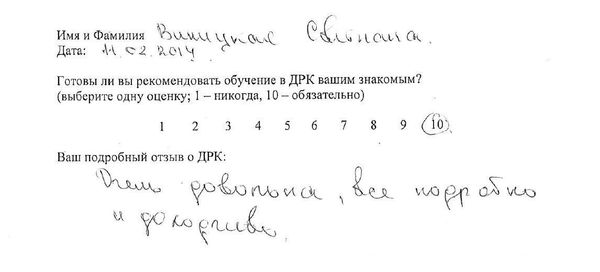 Имя и Фамилия Виницкая Светлана.
Дата: 11.02.2014
Готовы ли вы рекомендовать обучение в ДРК вашим знакомым?
(выберите одну оценку; 1 – никогда, 10 – обязательно)
1 2 3 4 5 6 7 8 9 10
Ваш подробный отзыв о ДРК:
Очень довольна, все подробно
и доходчиво.